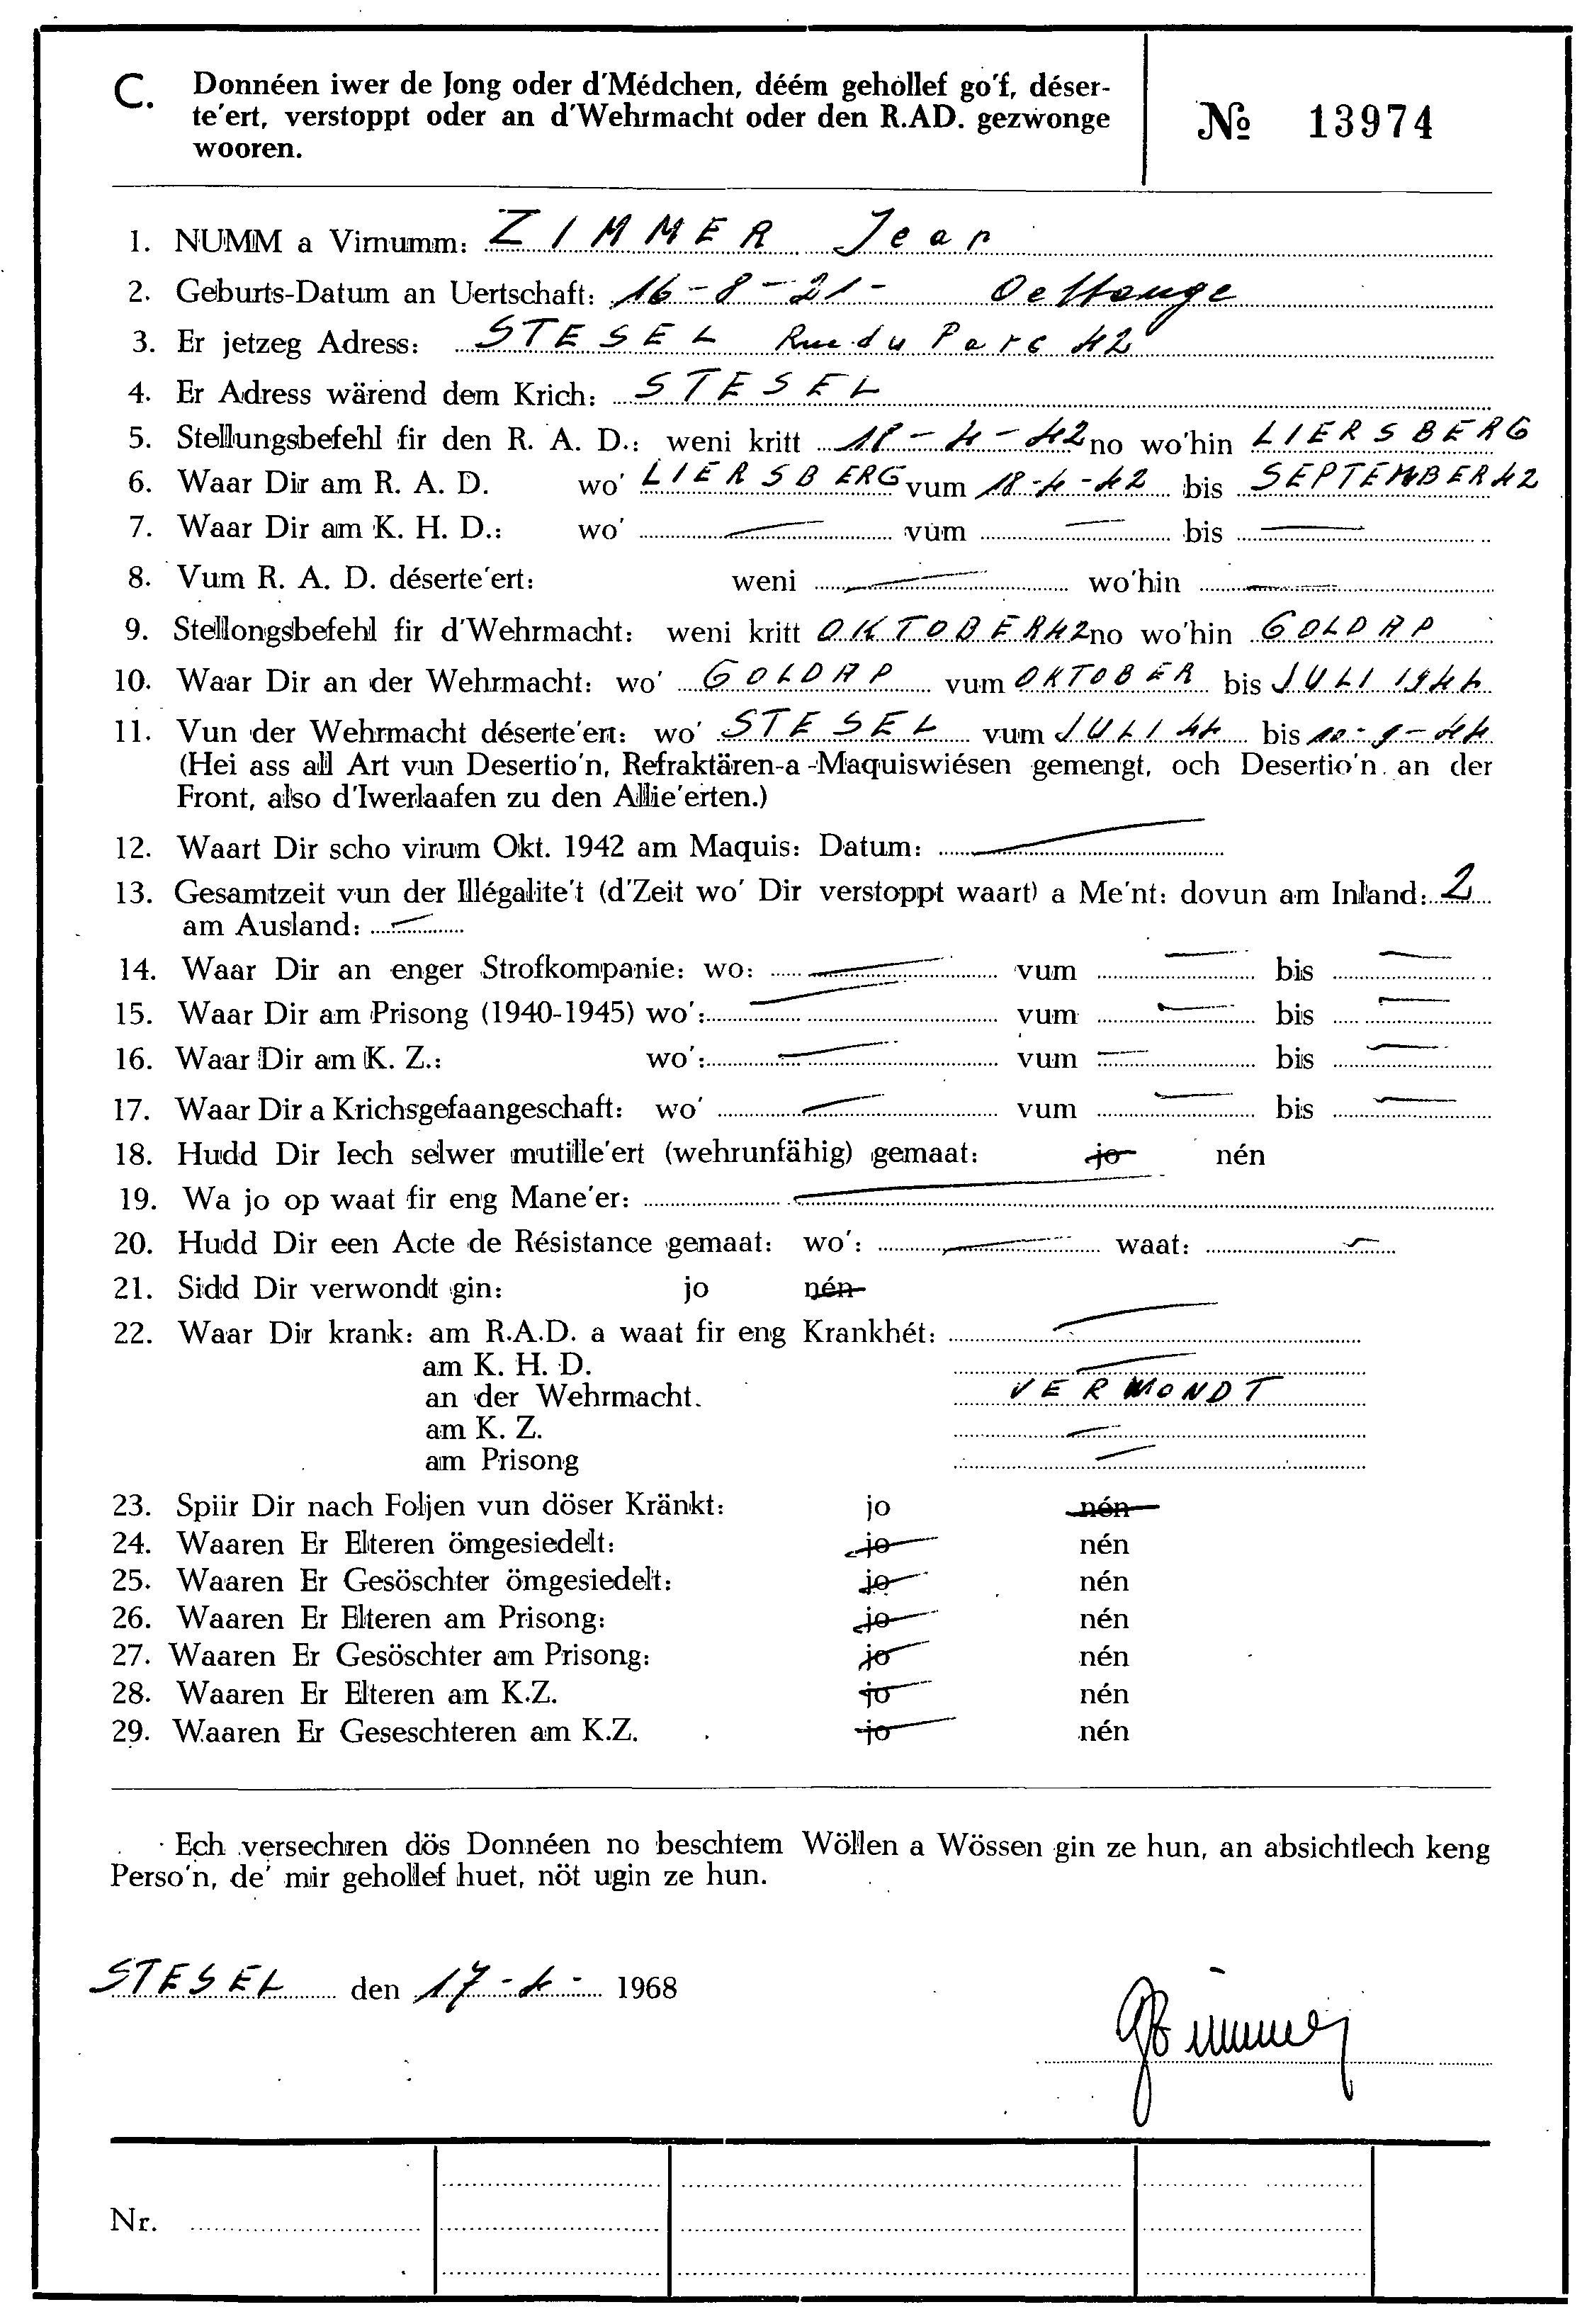 C. Donnéen iwer de Jong oder d'Médchen, déém gehollef go'f, déser-
te'ert, verstoppt oder an d'Wehrmacht oder den R.AD. gezwonge
wooren.
№ 13974
1. NUMM a Virnumm: ZIMMER Jean
2. Geburts-Datum an Uertschaft: 16-8-21- Oettange
3. Er jetzeg Adress: STESEL Rue du Parc 42
4. Er Adress wärend dem Krich: STESEL
5. Stellungsbefehl fir den R. A. D.: weni kritt 18-4-42 no wo'hin LIERSBERG
6. Waar Dir am R. A. D. wo' LIERSBERG vum 18-4-42 bis SEPTEMBER 42
7. Waar Dir am K. H. D.: wo' — vum — bis —
8. Vum R. A. D. déserte'ert: weni — wo'hin —
9. Stellongsbefehl fir d'Wehrmacht: weni kritt OKTOBER 42 no wo'hin GOLDAP
10. Waar Dir an der Wehrmacht: wo' GOLDAP vum OKTOBER bis JULI 1944
11. Vun der Wehrmacht déserte'ert: wo' STESEL vum JULI 44 bis 10-9-44
(Hei ass all Art vun Desertio'n, Refraktären-a-Maquiswiésen gemengt, och Desertio'n an der
Front, also d'Iwerlaafen zu den Allie'erten.)
12. Waart Dir scho virum Okt. 1942 am Maquis: Datum: —
13. Gesamtzeit vun der Illégalite't (d'Zeit wo' Dir verstoppt waart) a Me'nt: dovun am Inland: 2
am Ausland: —
14. Waar Dir an enger Strofkompanie: wo: — vum — bis —
15. Waar Dir am Prisong (1940-1945) wo': — vum — bis —
16. Waar Dir am K. Z.: wo': — vum — bis —
17. Waar Dir a Krichsgefaangeschaft: wo' — vum — bis —
18. Hudd Dir Iech selwer mutille'ert (wehrunfähig) gemaat: jo nén
19. Wa jo op waat fir eng Mane'er: —
20. Hudd Dir een Acte de Résistance gemaat: wo': — waat: —
21. Sidd Dir verwondt gin: jo nén
22. Waar Dir krank: am R.A.D. a waat fir eng Krankhét: —
am K. H. D. —
an der Wehrmacht. VERWONDT
am K. Z. —
am Prisong —
23. Spiir Dir nach Foljen vun döser Kränkt: jo nén
24. Waaren Er Elteren ömgesiedelt: jo nén
25. Waaren Er Gesöschter ömgesiedelt: jo nén
26. Waaren Er Elteren am Prisong: jo nén
27. Waaren Er Gesöschter am Prisong: jo nén
28. Waaren Er Elteren am K.Z. jo nén
29. Waaren Er Geseschteren am K.Z. jo nén
Ech versechren dös Donnéen no beschtem Wöllen a Wössen gin ze hun, an absichtlech keng
Perso'n, de' mir gehollef huet, nöt ugin ze hun.
STESEL den 17-4- 1968
JZimmer
Nr.